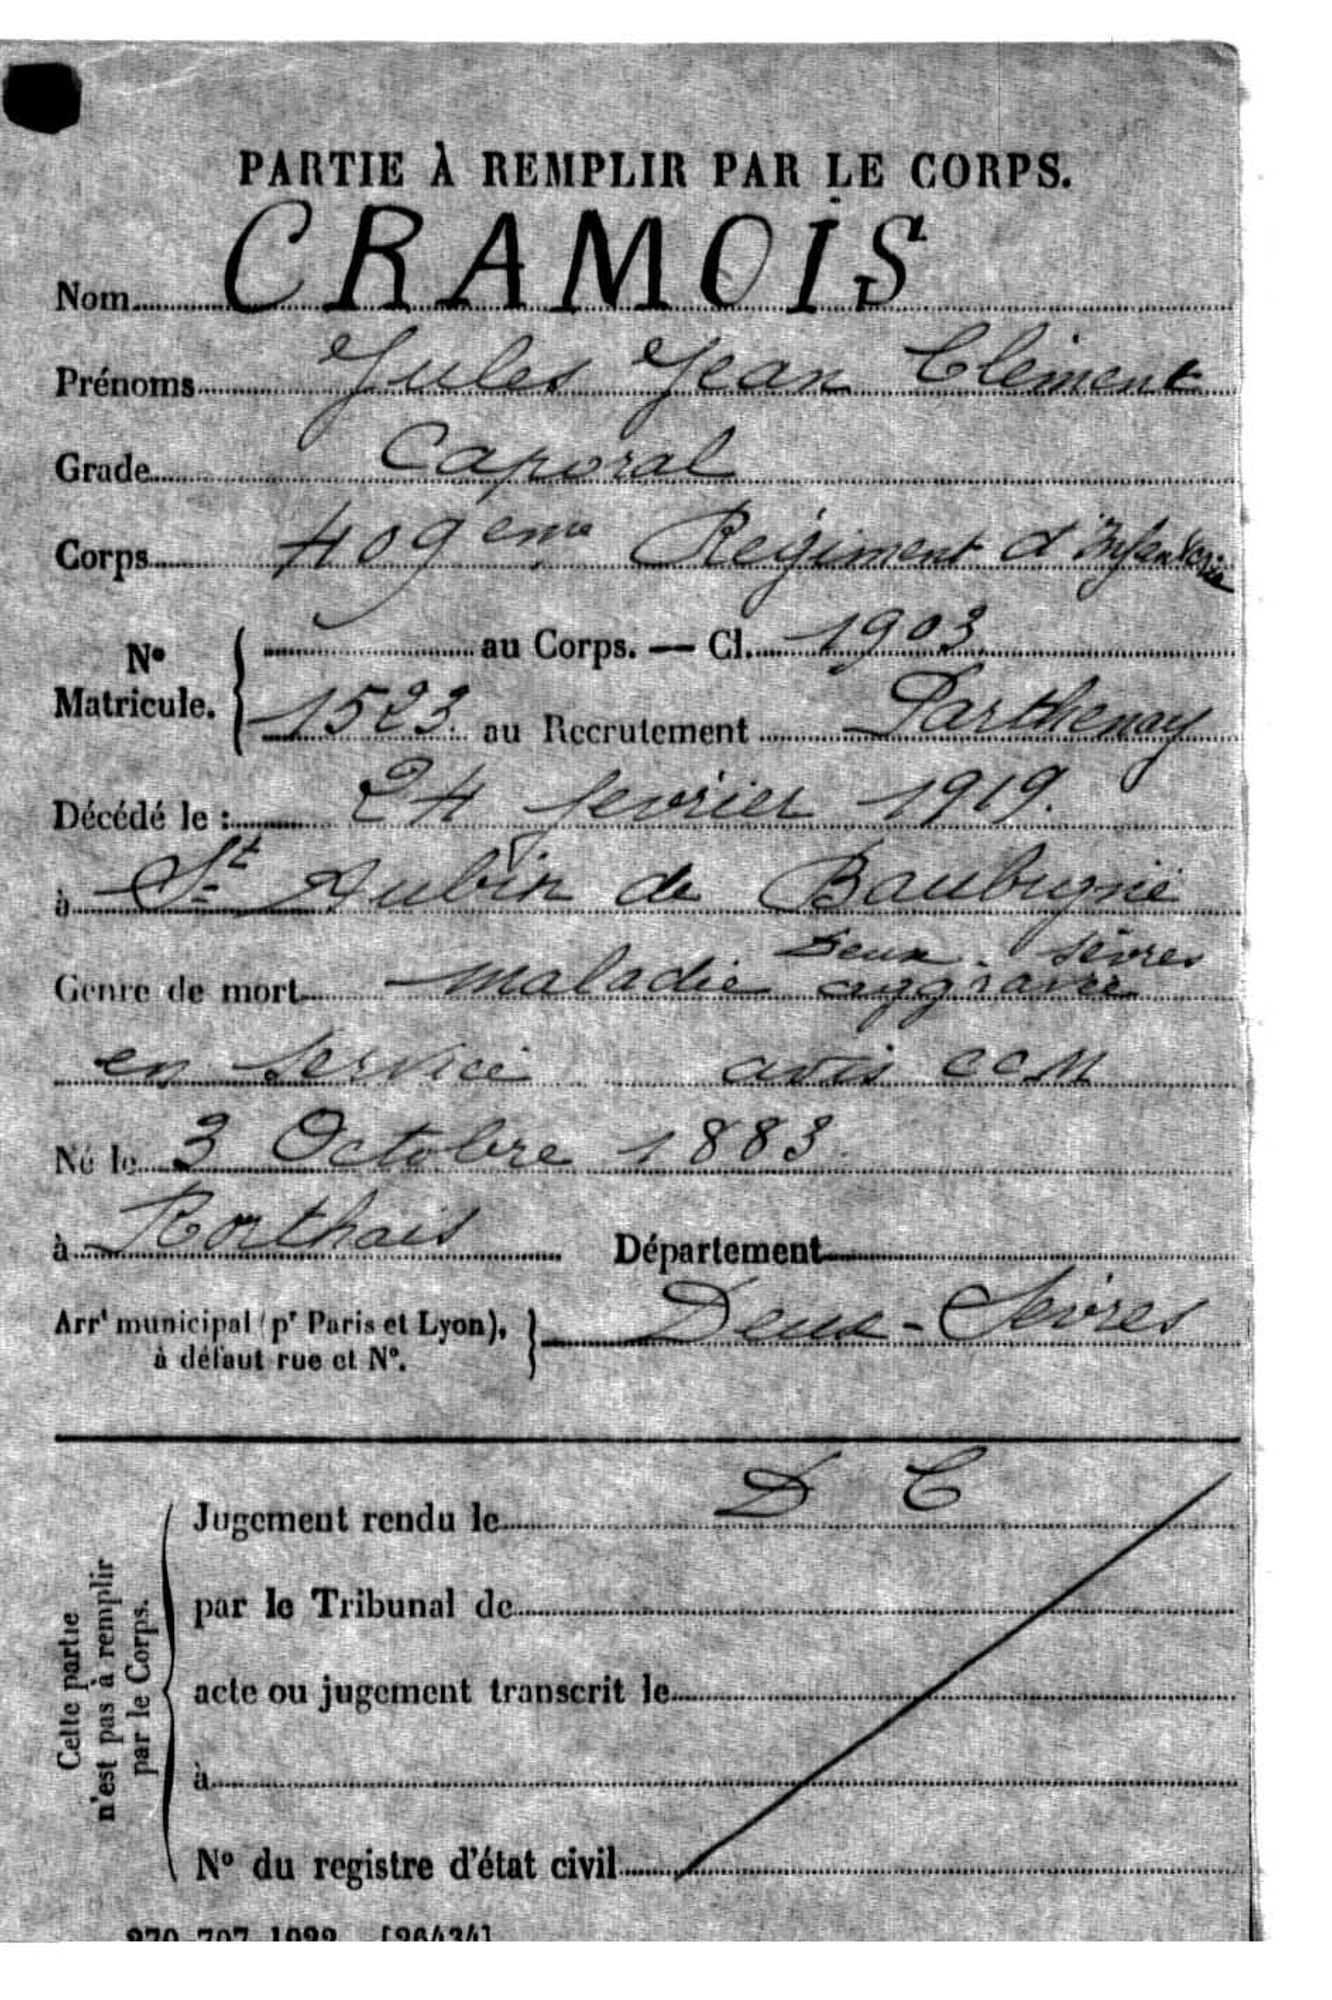 PARTIE À REMPLIR PAR LE CORPS.
Nom CRAMOIS
Prénoms Jules Jean Clément
Grade Caporal
Corps 409eme Régiment d'Infanterie
N° Matricule. { au Corps. — Cl. 1903
1523. au Recrutement Parthenay
Décédé le : 24 fevrier 1919.
à St Aubin de Baubigné
Deux-Sèvres
Genre de mort maladie aggravée
en service avis CCM
Né le 3 Octobre 1883.
à Rorthais Département
Arrt municipal (pr Paris et Lyon), à défaut rue et N°. } Deux-Sèvres
Cette partie n'est pas à remplir par le Corps.
Jugement rendu le D C
par le Tribunal de
acte ou jugement transcrit le
à
N° du registre d'état civil
270.707.1922. [26434]